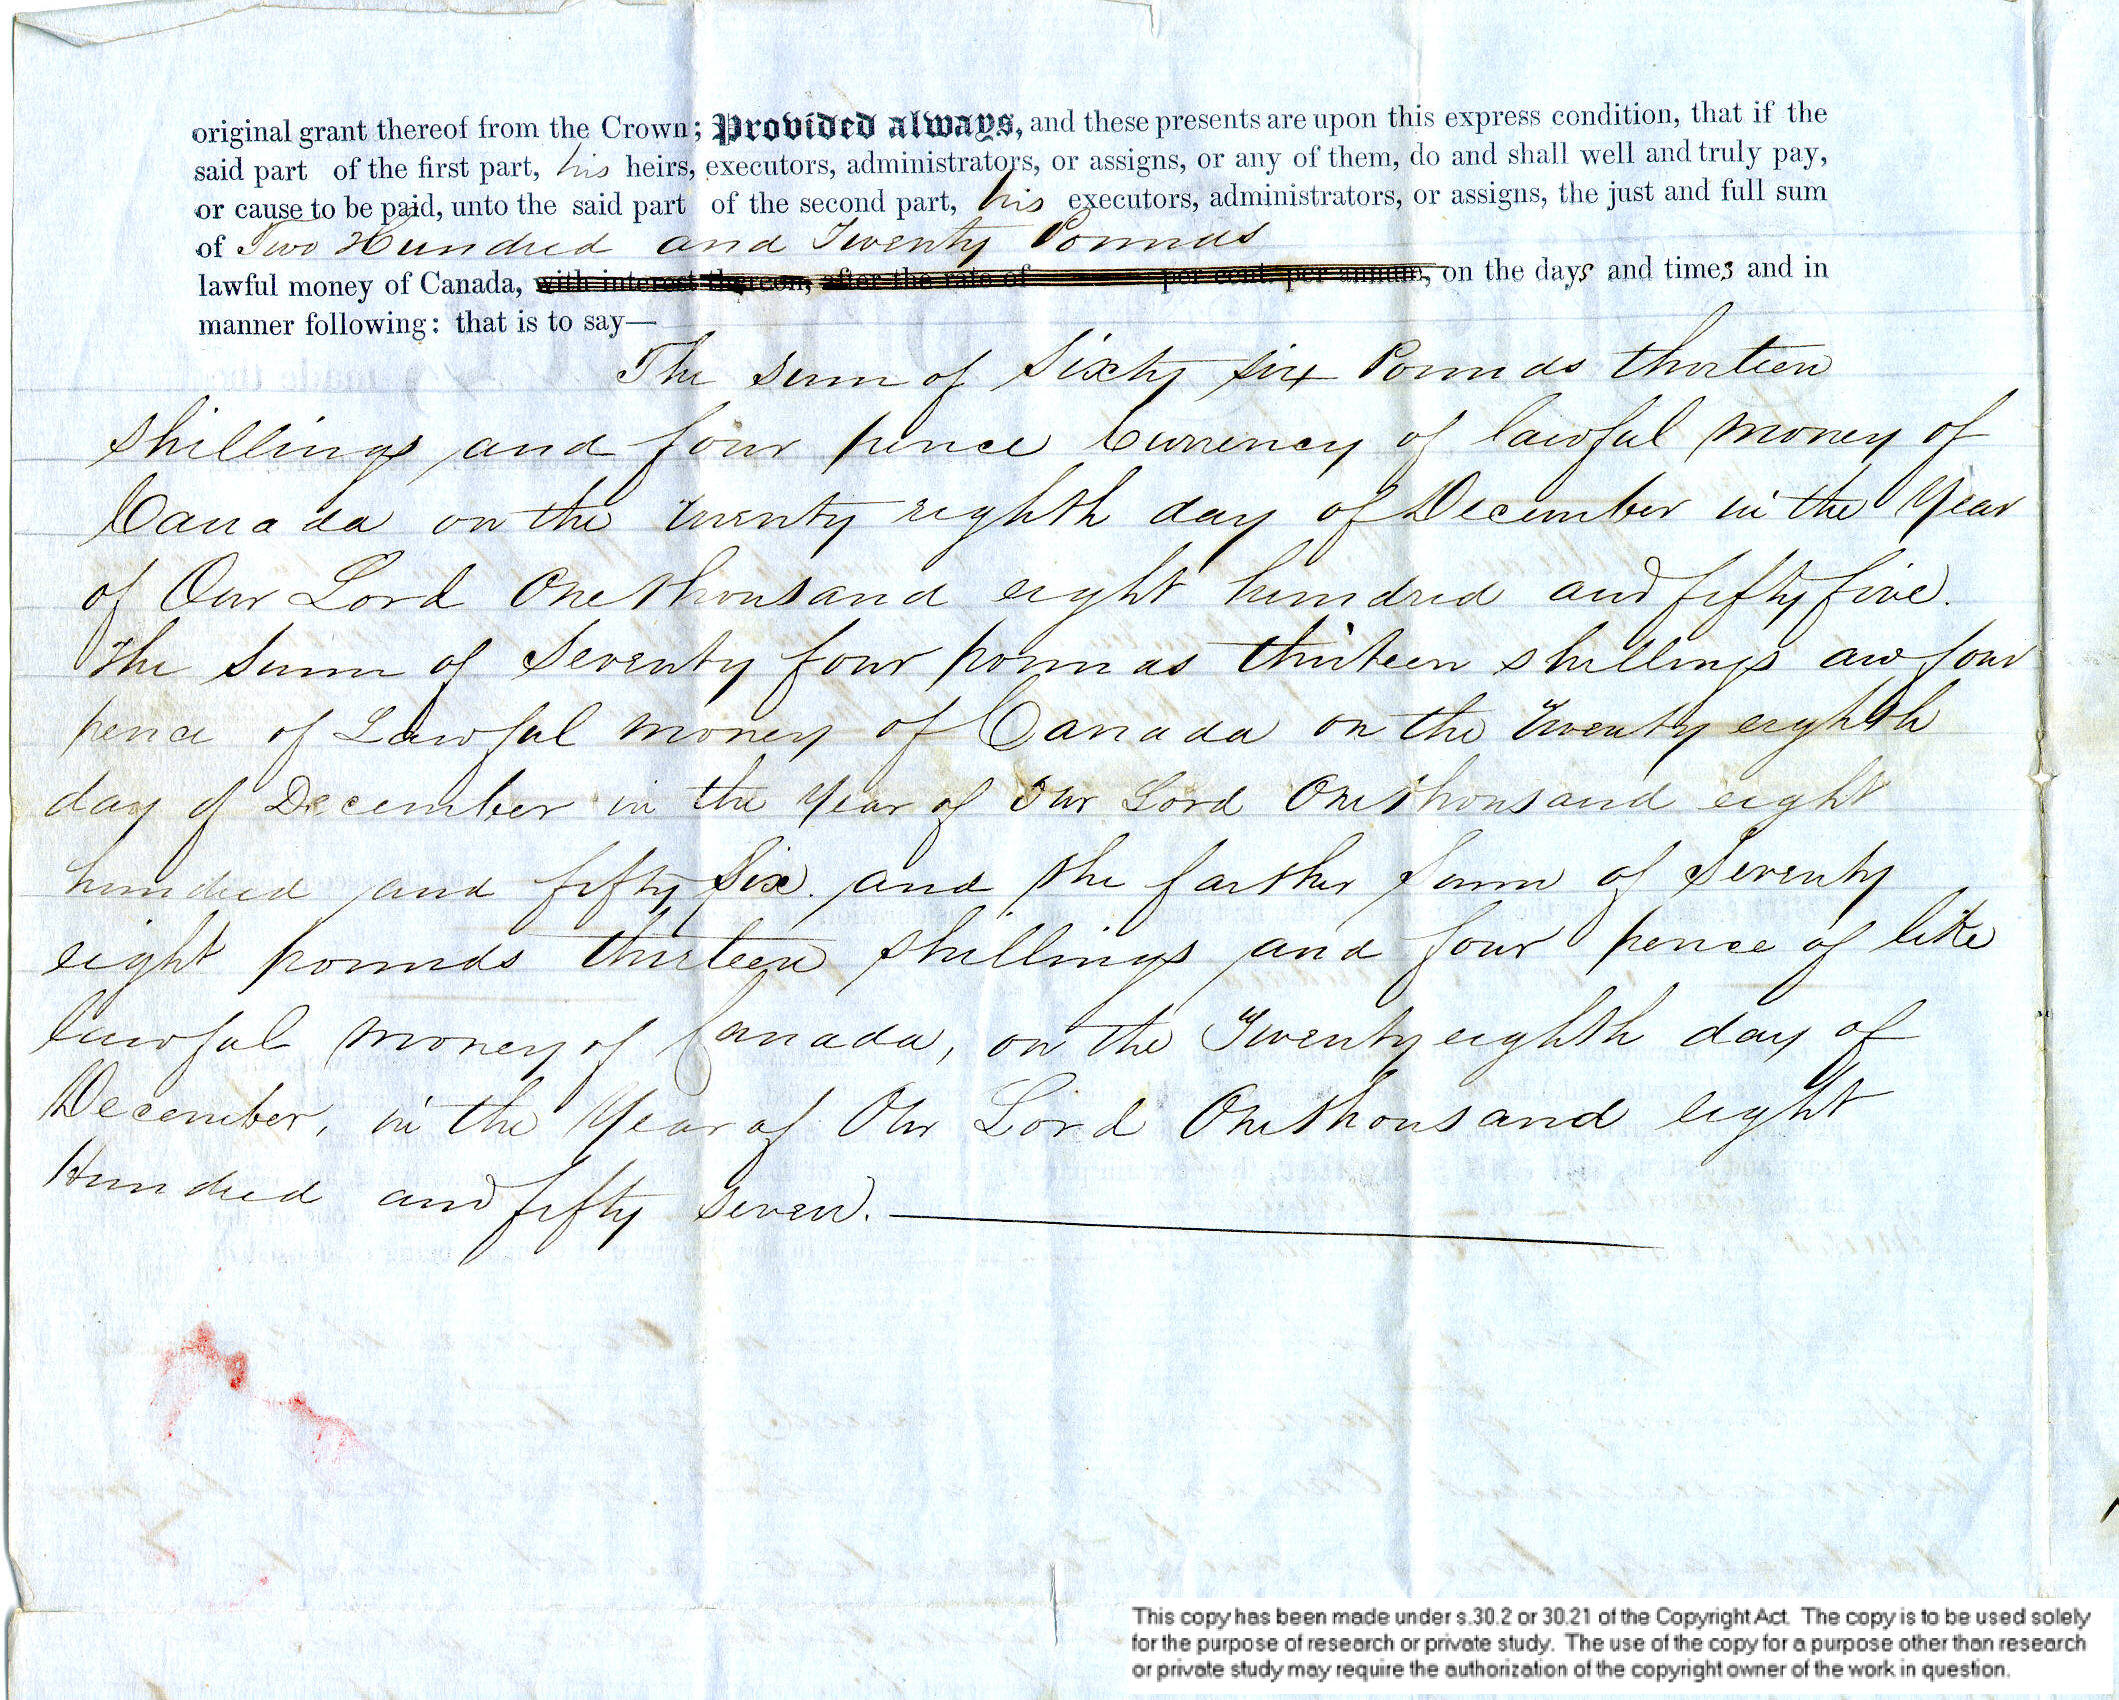 original grant thereof from the Crown; Provided always, and these presents are upon this express condition, that if the
said part of the first part, his heirs, executors, administrators, or assigns, or any of them, do and shall well and truly pay,
or cause to be paid, unto the said part of the second part, his executors, administrators, or assigns, the just and full sum
of Two Hundred and Twenty Pounds
lawful money of Canada, with interest thereon, after the rate of per cent. per annum, on the days and times and in
manner following: that is to say—
The sum of Sixty six Pounds thirteen
shillings and four pence Currency of lawful money of
Canada on the twenty eighth day of December in the Year
of Our Lord One thousand eight hundred and fifty five.
The Sum of Seventy four pounds thirteen shillings and four
pence of Lawful money of Canada on the twenty eighth
day of December in the Year of Our Lord One thousand eight
hundred and fifty six. and the farther sum of Seventy
eight pounds thirteen shillings and four pence of like
lawful money of Canada, on the Twenty eighth day of
December, in the Year of Our Lord One thousand eight
Hundred and fifty seven.
This copy has been made under s.30.2 or 30.21 of the Copyright Act. The copy is to be used solely
for the purpose of research or private study. The use of the copy for a purpose other than research
or private study may require the authorization of the copyright owner of the work in question.